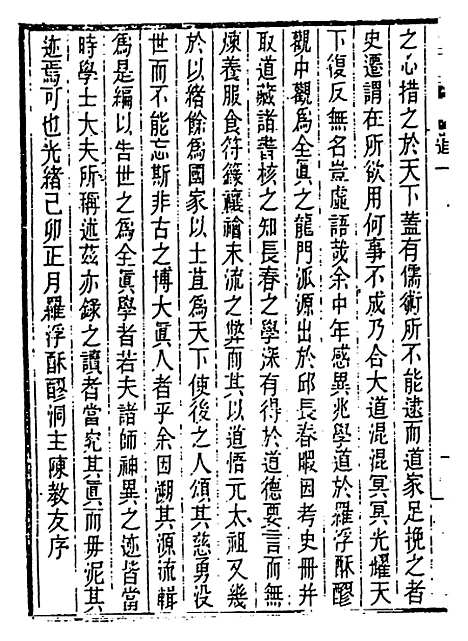 道一
之心措之於天下蓋有儒術所不能逮而道家足挽之者
史遷謂在所欲用何事不成乃合大道混混冥冥光耀天
下復反無名豈虛語哉余中年感異兆學道於羅浮酥醪
觀中觀爲全眞之龍門派源出於邱長春暇因考史冊并
取道藏諸書核之知長春之學深有得於道德要言而無
煉養服食符籙禳禬末流之弊而其以道悟元太祖又幾
於以緒餘爲國家以土苴爲天下使後之人頌其慈勇役
世而不能忘斯非古之博大眞人者乎余因溯其源流輯
爲是編以告世之爲全眞學者若夫諸師神異之迹皆當
時學士大夫所稱述茲亦錄之讀者當究其眞而毋泥其
迹焉可也光緒己卯正月羅浮酥醪洞主陳教友序